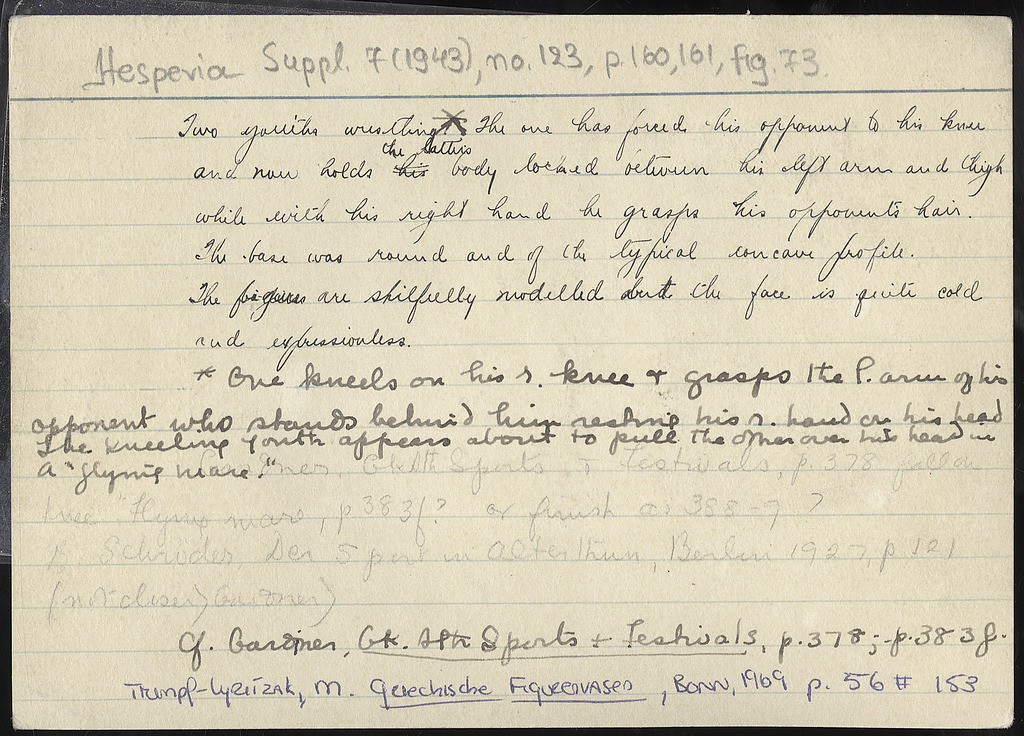 Hesperia Suppl. 7 (1943), no. 123, p. 160, 161, fig. 73
Two youths wrestling * The one has forced his opponent to his knee
the latter's
and now holds his body locked between his left arm and thigh
while with his right hand he grasps his opponent's hair.
The base was round and of the typical concave profile.
The figures are skilfully modelled but the face is quite cold
and expressionless.
* One kneels on his r. knee + grasps the l. arm of his
opponent who stands behind him resting his r. hand on his head
The kneeling youth appears about to pull the other over his head in
a "flying mare."
Gk Ath Sports + Festivals, p. 378
knee "Flying mare, p 383f? or finish as 388-9?
B. Schröder, Der Sport im Altertum, Berlin 1927, p. 121
(not closer) Gardner)
Cf. Gardner, Gk. Ath Sports + Festivals, p. 378; p. 383f.
Trumpf-Lyritzak, M. Griechische Figurenvasen, Bonn, 1969 p. 56 # 153